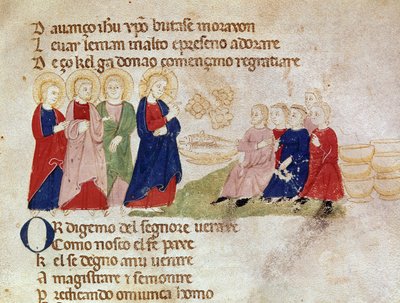 D auanço ihu xp̃o butase inoraxon
L euar leman inalto epreseno adorare
D e ço kel ga donao començmo regratiare
OR digemo del segnore verare
C omo nosco el fe paxe
K el se degno anu uerare
A magistrare 7 semonire
P redicando omiunca homo